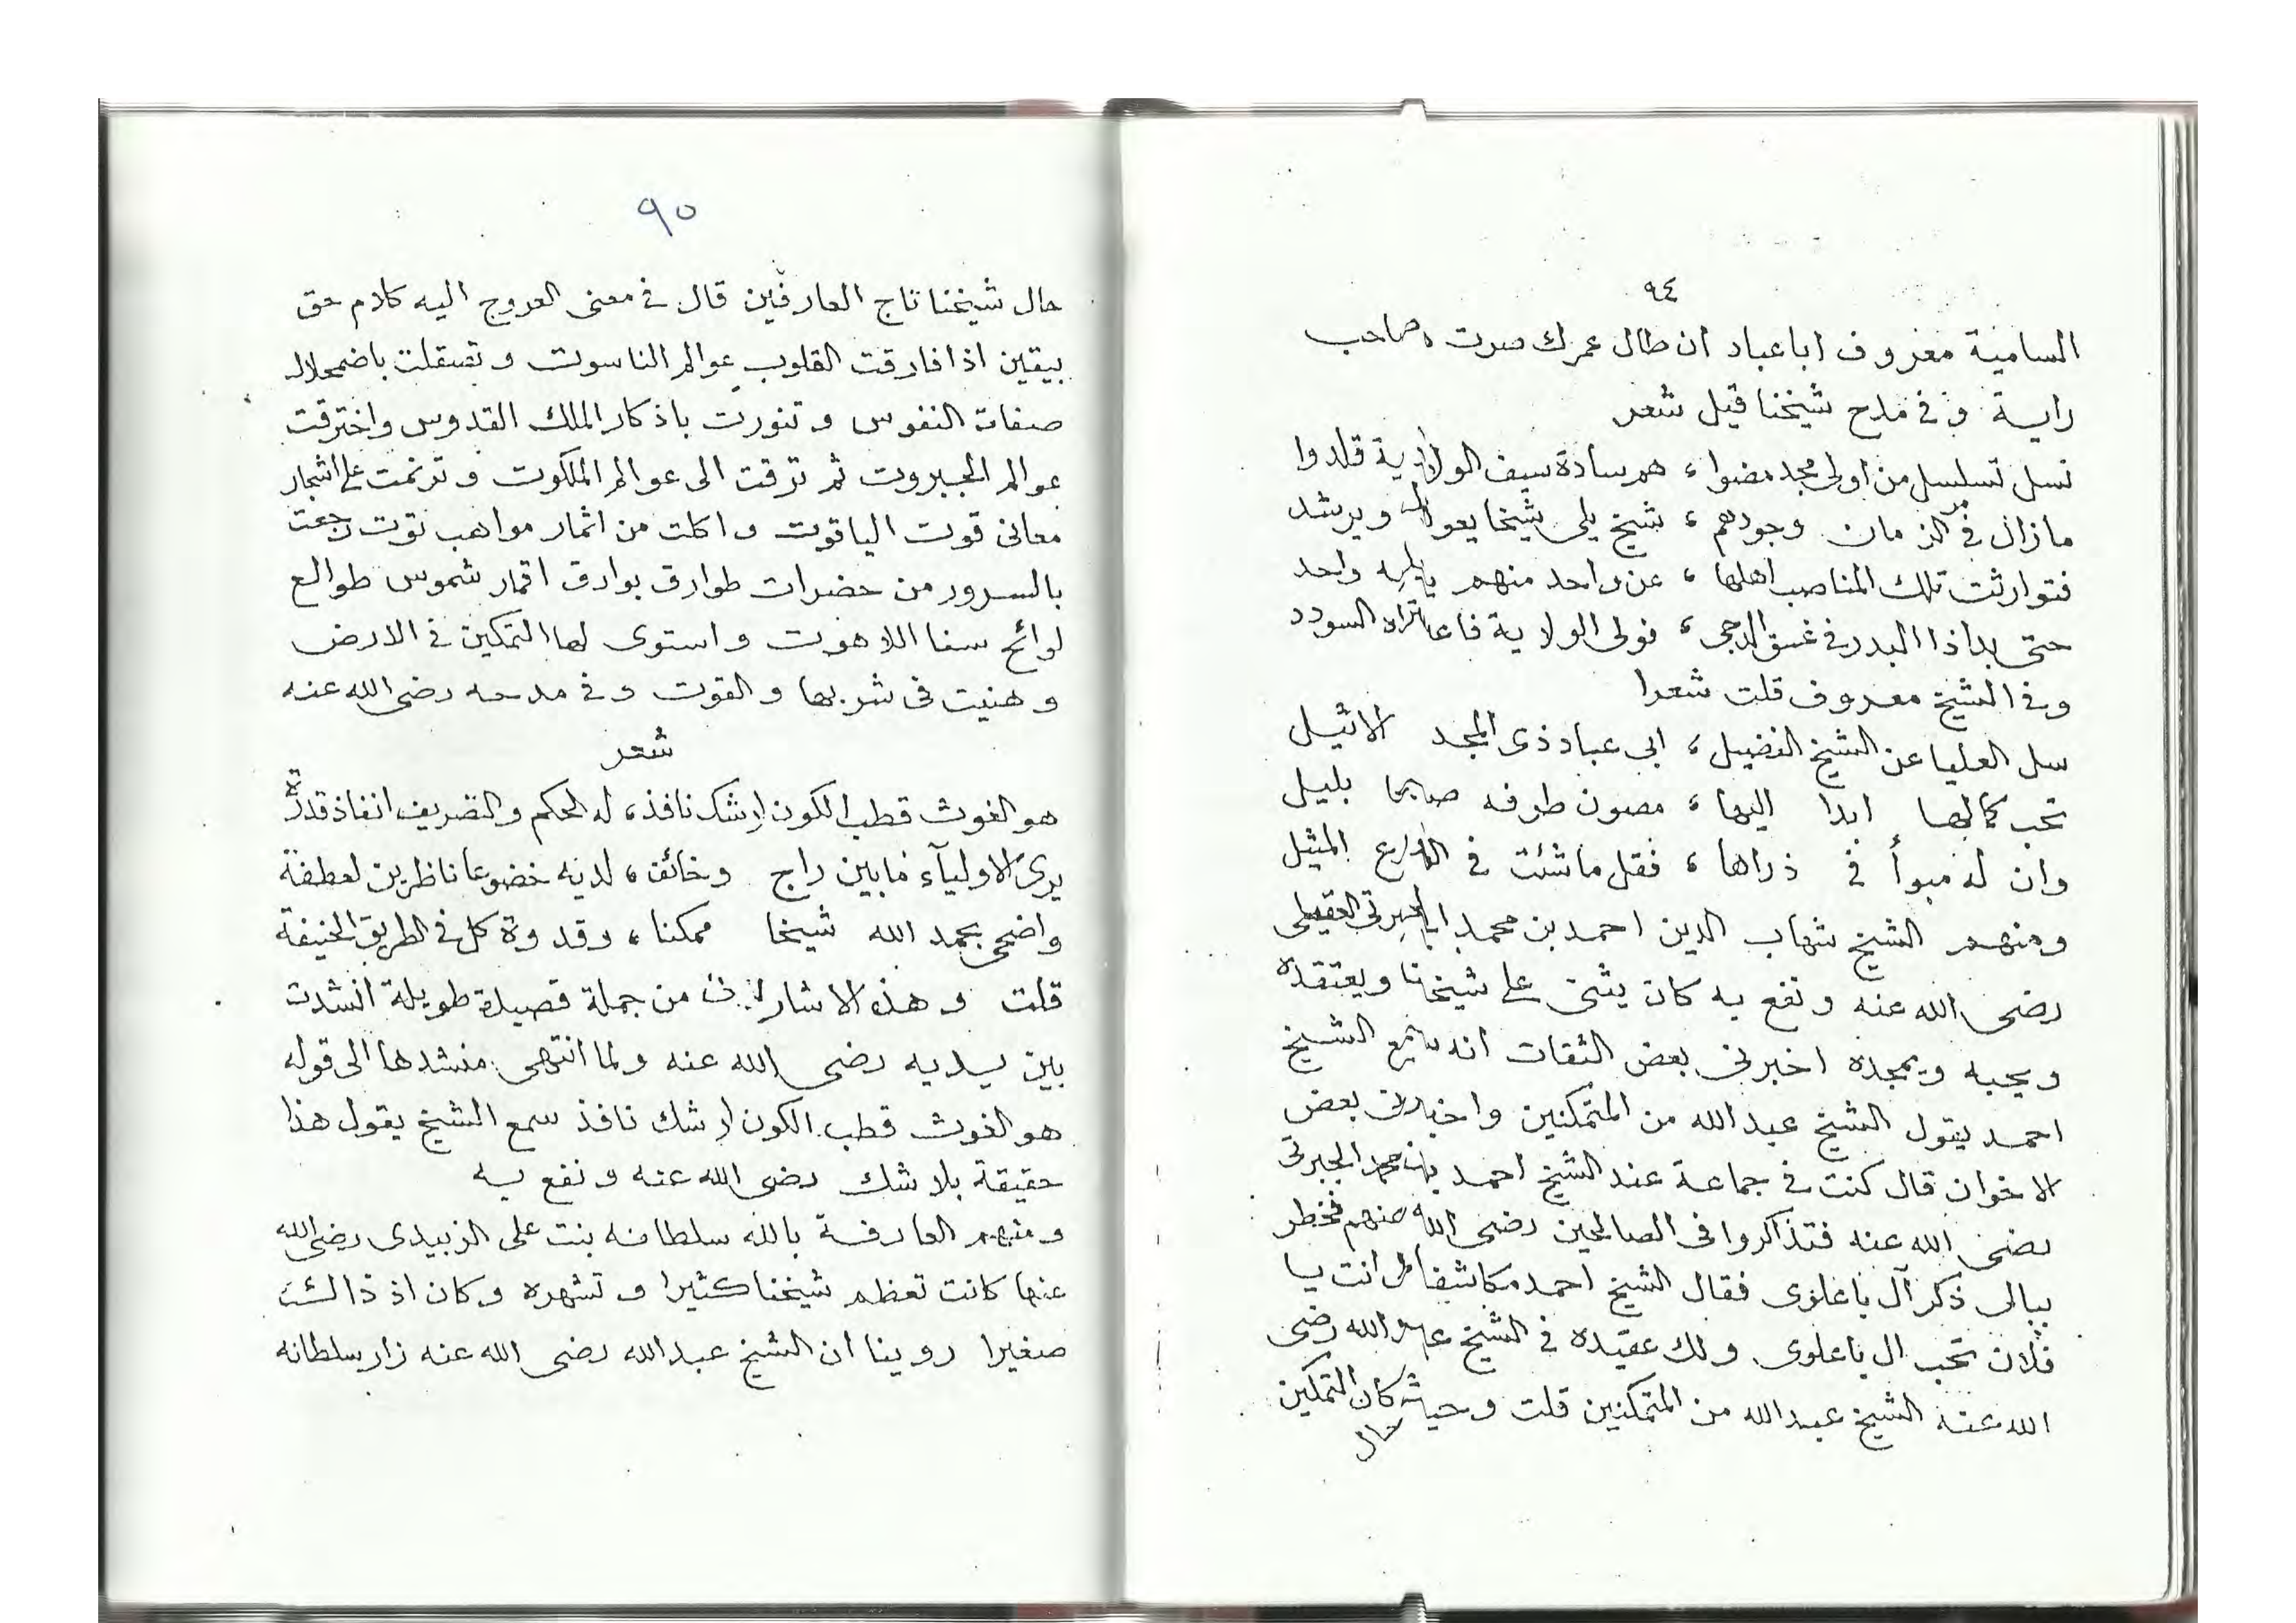 ٩٤
السامية معروف ابا عباد ان طال عمرك صرت صاحب
راية و في مدح شيخنا قيل شعر
نسل تسلسل من اولى مجد مضوا، هم سادة سيف الولاية قلدوا
مازال في الزمان وجودهم، شيخ يلي شيخا يعول ويرشد
فتوارثت تلك المناصب اهلها، عن واحد منهم يليه واحد
حتى بدا ذا البدر في غسق الدجى، فولى الولاية السودد
وفي الشيخ معروف قلت شعرا
سل العليا عن الشيخ الفضيل، ابى عباد ذى المجد الاثيل
تحب كمالها ابدا اليها، مصون طرفه بليل
وان له مبوأ في ذراها، فقل ما شئت في المثيل
ومنهم الشيخ شهاب الدين احمد بن محمد الجبرتي العقيلى
رضى الله عنه ونفع به كان يثنى على شيخنا ويعتقده
ويحبه ويمجده اخبرنى بعض الثقات انه سمع الشيخ
احمد يقول الشيخ عبدالله من المتمكنين واخبرنى بعض
الاخوان قال كنت في جماعة عند الشيخ احمد بن محمد الجبرتى
رضى الله عنه فتذاكروا فى الصالحين رضى الله عنهم فخطر
ببالى ذكر آل باعلوى فقال الشيخ احمد مكاشفا لى انت يا
فلان تحب ال باعلوى ولك عقيده في الشيخ عبد الله رضى
الله عنه الشيخ عبدالله من المتمكنين قلت وحيث كان التمكين
حال
٩٥
حال شيخنا تاج العارفين قال في معنى العروج اليه كلام حق
بيقين اذا فارقت القلوب عوالم الناسوت و تصقلت باضمحلال
صفات النفوس و تنورت باذكار الملك القدوس واخترقت
عوالم الجبروت ثم ترقت الى عوالم الملكوت و ترنمت على اشجار
معانى قوت الياقوت و اكلت من اثمار مواهب توت رجعت
بالسرور من حضرات طوارق بوارق اقمار شموس طوالع
لوائح سنا اللاهوت و استوى لها التمكين في الارض
و هنيت فى شربها و القوت و في مدحه رضى الله عنه
شعر
هو الغوث قطب الكون لا شك نافذ، له الحكم والتصريف انفاذ قدرة
يرى الاولياء ما بين راج وخائف، لديه خضوعا ناظرين لعطفة
واضحى بحمد الله شيخا ممكنا، وقدوة كل في الطريق الحنيفة
قلت و هذه الاشارات من جملة قصيدة طويلة انشدت
بين يديه رضى الله عنه ولما انتهى منشدها الى قوله
هو الغوث قطب الكون لا شك نافذ سمع الشيخ يقول هذا
حقيقة بلا شك رضى الله عنه و نفع به
و منهم العارفة بالله سلطانه بنت على الزبيدى رضى الله
عنها كانت تعظم شيخنا كثيرا و تشهره وكان اذ ذالك
صغيرا روينا ان الشيخ عبدالله رضى الله عنه زار سلطانه